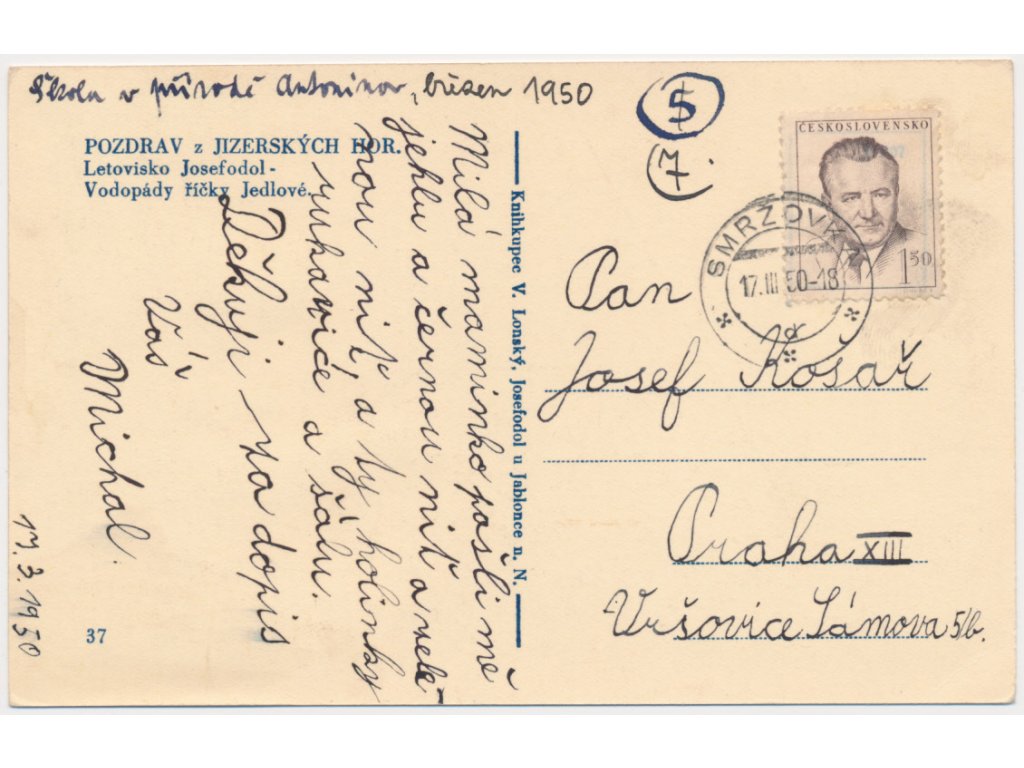 Škola v přírodě Antonínov, březen 1950
POZDRAV z JIZERSKÝCH HOR.
Letovisko Josefodol -
Vodopády říčky Jedlové.
Milá maminko pošli mě
jehlu a černou niť a zele-
nou niť, a ty holinky
rukavice a šálu.
Děkuji za dopis
Váš
Michal.
17. 3. 1950
37
Knihkupec V. Lonský, Josefodol u Jablonce n. N.
5
7.
ČESKOSLOVENSKO
1 50
SMRŽOVKA
17.III 50-18
Pan
Josef Košař
Praha XIII
Vršovice Sámova 5/b.